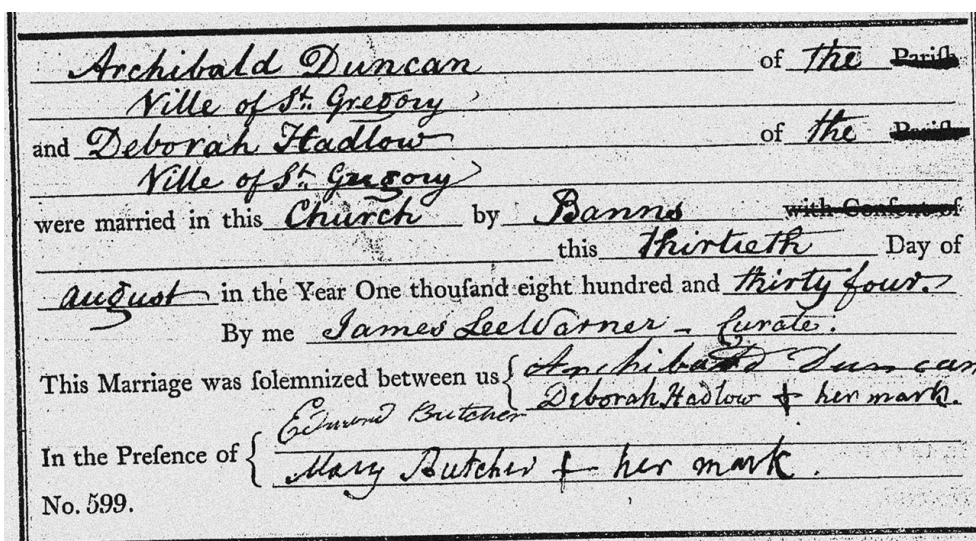 Archibald Duncan of the Pariſh
Ville of St. Gregory
and Deborah Hadlow of the Pariſh
Ville of St. Gregory
were married in this Church by Banns with Conſent of
this thirtieth Day of
august in the Year One thouſand eight hundred and thirty four.
By me James Lee Warner - Curate.
This Marriage was ſolemnized between us { Archibald Duncan
Deborah Hadlow + her mark.
In the Preſence of { Edmund Butcher
Mary Butcher + her mark.
No. 599.